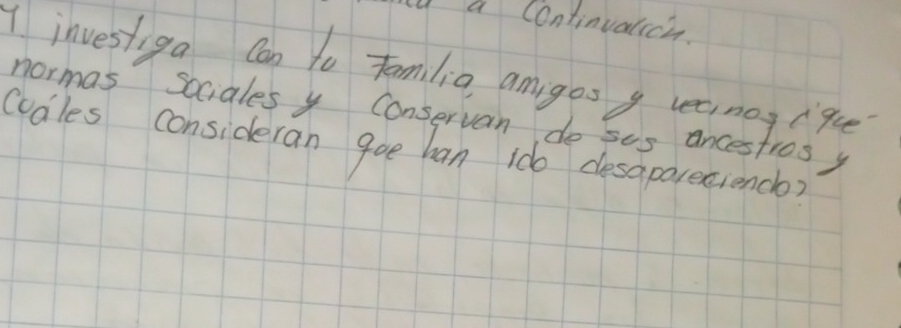 a continuación.
1. investiga con tu familia, amigos y vecinos ¿que
normas sociales y conservan de sus ancestros y
cuáles consideran que han ido desapareciendo?